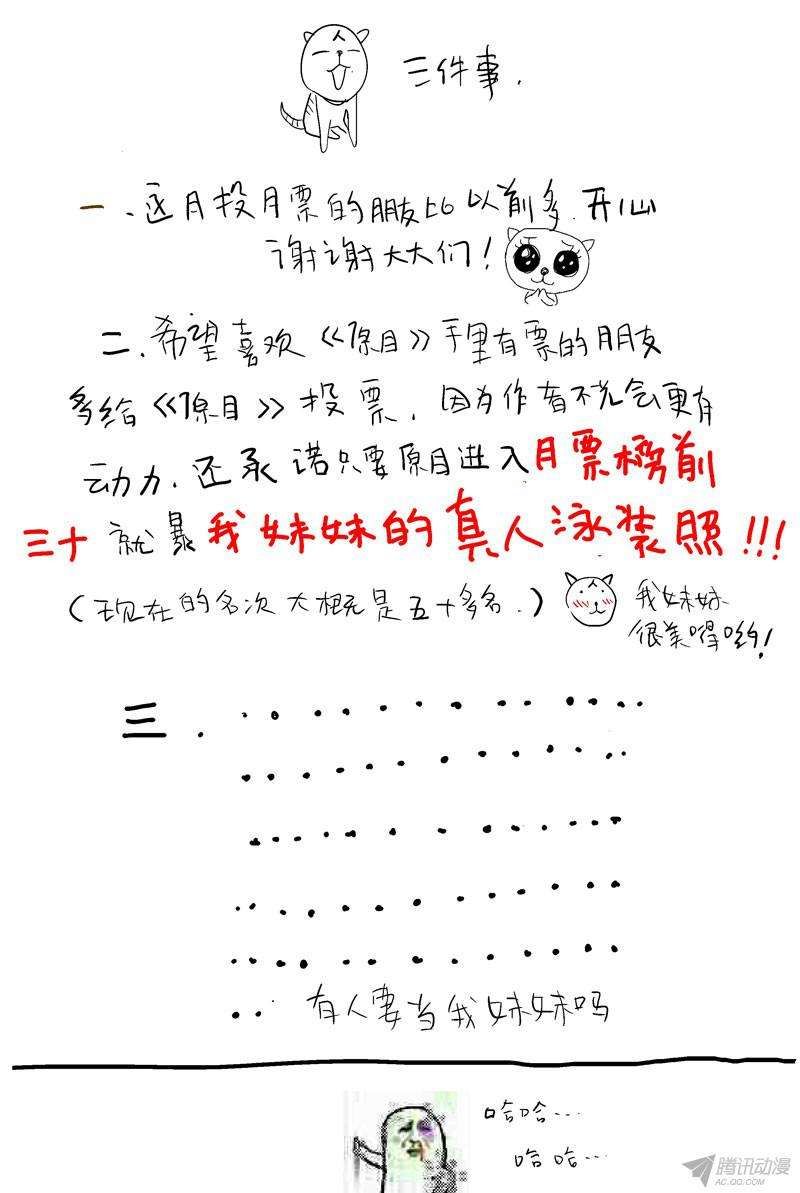 三件事.
一、这月投月票的朋友比以前多.开心
谢谢大大们!
二.希望喜欢《原目》手里有票的朋友
多给《原目》投票.因为作者不光会更有
动力.还承诺只要原目进入月票榜前
三十就暴我妹妹的真人泳装照!!!
(现在的名次大概是五十多名.)
我妹妹
很美嘚哟!
三.
有人要当我妹妹吗
哈哈...
哈哈...
腾讯动漫
AC.QQ.COM